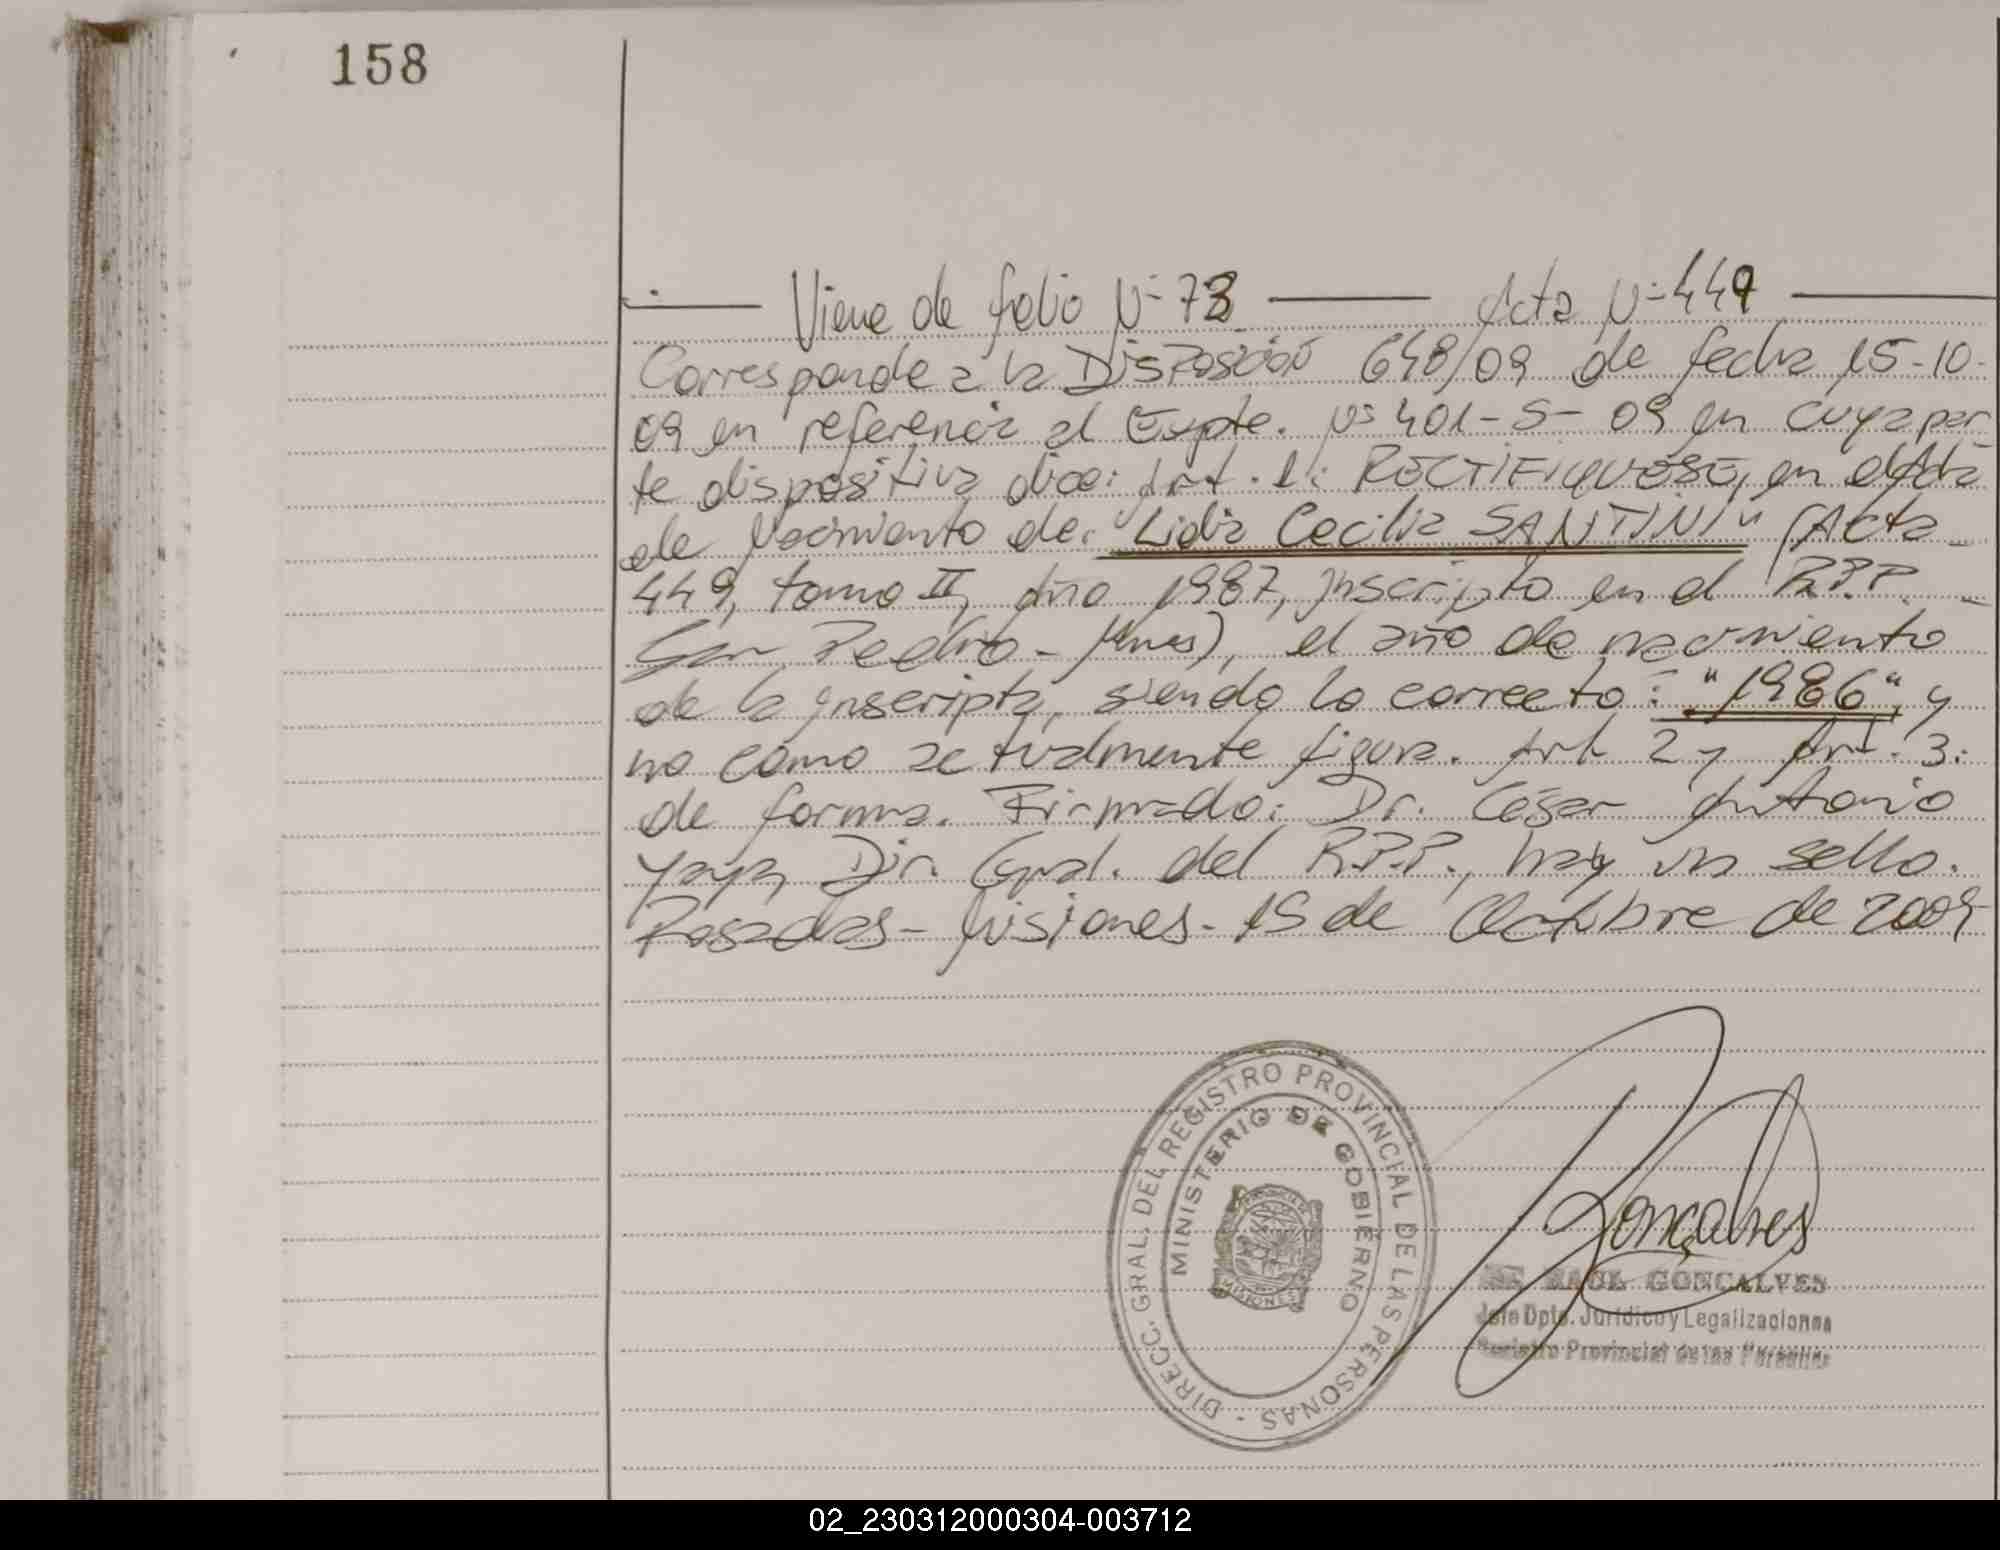 158
Viene de folio Nº 73 Acta Nº 449
Corresponde a la Disposición 648/09 de fecha 15-10-
09 en referencia al Expte. Nº 401-S-09 en cuya par-
te dispositiva dice: Art. 1: RECTIFIQUESE, en el Acta
de Nacimiento de: Lidia Cecilia SANTINI (Acta
449, tomo II, Año 1987, Inscripto en el R.P.P. -
San Pedro - Mnes), el año de nacimiento
de la Inscripta, siendo lo correcto: "1986", y
no como actualmente figura. Art 2 y Art. 3:
de forma. Firmado: Dr. César Antonio
Dir. Gral. del R.P.P., hay un sello.
Posadas - Misiones. 15 de Octubre de 2009
DIRECC. GRAL. DEL REGISTRO PROVINCIAL DE LAS PERSONAS -
MINISTERIO DE GOBIERNO
PROVINCIA
MISIONES
Gonçalves
RAUL GONCALVES
Jefe Dpto. Juridico y Legalizaciones
Registro Provincial de las Personas
02_230312000304-003712